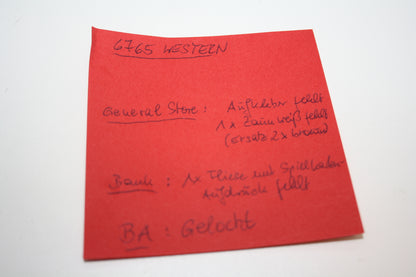 6765 WESTERN
General Store : Aufkleber fehlt
1 x Zaun weiß fehlt
(ersatz 2x braun)
Bank : 1x Fliese mit Spielkarten-
Aufdruck fehlt
BA : Gelocht